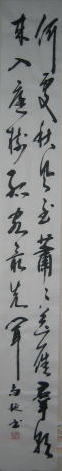 何處秋風至蕭々送雁羣朝
來入庭樹孤客最先聞